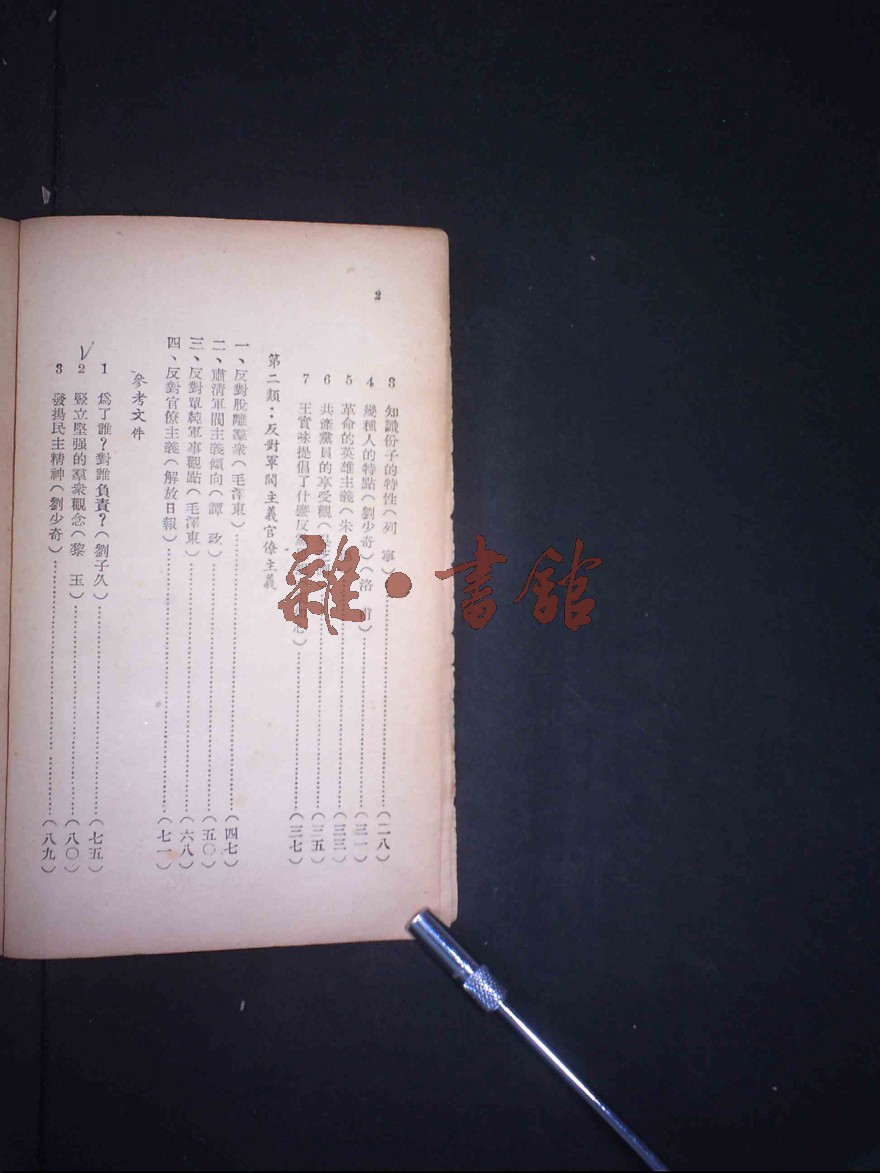 2
3 知識份子的特性(列 寧)……(二八)
4 幾種人的特點(劉少奇)(洛 甫)……(三一)
5 革命的英雄主義(朱……(三三)
6 共產黨員的享受觀(……(三五)
7 王實味提倡了什麼反……)……(三七)
第二類:反對軍閥主義官僚主義
一、反對脫離羣衆(毛澤東)……(四七)
二、肅清軍閥主義傾向(譚 政)……(五〇)
三、反對單純軍事觀點(毛澤東)……(六八)
四、反對官僚主義(解放日報)……(七一)
參考文件
1 爲了誰?對誰負責?(劉子久)……(七五)
2 堅立堅强的羣衆觀念(黎 玉)……(八〇)
3 發揚民主精神(劉少奇)……(八九)
雜·書館